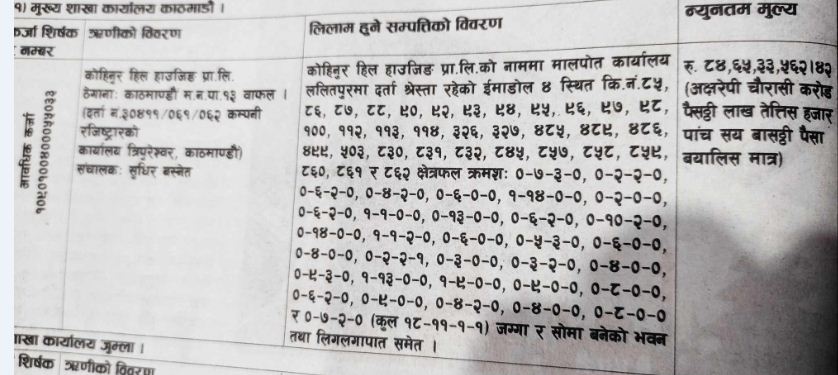 १) मुख्य शाखा कार्यालय काठमाडौं ।
कर्जा शिर्षक ऋणीको विवरण
नम्बर
लिलाम हुने सम्पत्तिको विवरण
न्युनतम मुल्य
आवधिक कर्जा
कोहिनुर हिल हाउजिङ प्रा.लि.
ठेगानाः काठमाण्डौ म.न.पा.१३ बाफल ।
(दर्ता नं.३०४११/०६१/०६२ कम्पनी
रजिष्ट्रारको
कार्यालय त्रिपुरेश्वर, काठमाण्डौ)
संचालकः सुधिर बस्नेत
कोहिनुर हिल हाउजिङ प्रा.लि.को नाममा मालपोत कार्यालय
ललितपुरमा दर्ता श्रेस्ता रहेको ईमाडोल ४ स्थित कि.नं.८५,
८६, ८७, ८८, ९०, ९२, ९३, ९४, ९५, ९६, ९७, ९८,
१००, ११२, ११३, ११४, ३२६, ३२७, ४८५, ४८९, ४८६,
४९९, ५०३, ८३०, ८३१, ८३२, ८४५, ८५७, ८५८, ८५९,
८६०, ८६१ र ८६२ क्षेत्रफल क्रमशः ०-७-३-०, ०-२-२-०,
०-६-२-०, ०-४-२-०, ०-६-०-०, १-१४-०-०, ०-२-०-०,
०-६-२-०, १-१-०-०, ०-१३-०-०, ०-६-२-०, ०-१०-२-०,
०-१४-०-०, १-१-२-०, ०-६-०-०, ०-५-३-०, ०-६-०-०,
०-४-०-०, ०-२-२-१, ०-३-०-०, ०-३-२-०, ०-४-०-०,
०-९-३-०, १-१३-०-०, १-९-०-०, ०-९-०-०, ०-८-०-०,
०-६-२-०, ०-९-०-०, ०-४-२-०, ०-४-०-०, ०-८-०-०
र ०-७-२-० (कुल १८-११-१-१) जग्गा र सोमा बनेको भवन
तथा लिगलगापात समेत ।
रु. ८४,६५,३३,५६२।४२
(अक्षरेपी चौरासी करोड
पैसठ्ठी लाख तेत्तिस हजार
पांच सय बासठ्ठी पैसा
बयालिस मात्र)
शाखा कार्यालय जुम्ला ।
शिर्षक ऋणीको विवरण